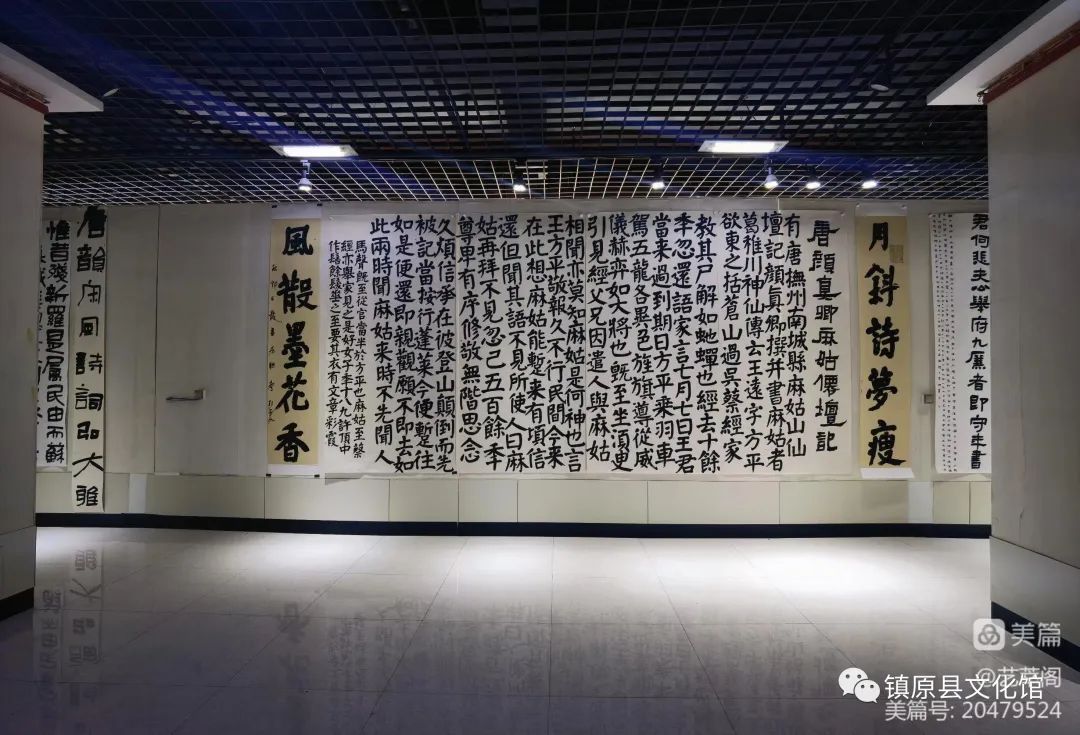 月斜詩夢瘦
唐顏真卿麻姑僊壇記
有唐撫州南城縣麻姑山仙
壇記顏真卿撰并書麻姑者
葛稚川神仙傳云王遠字方平
欲東之括蒼山過吳蔡經家
教其尸解如虵蟬也經去十餘
季忽還語家言七月七日王君
當來過到期日方平乘羽車
駕五龍各異色旌旗導從威
儀赫弈如大將也既至坐湏臾
引見經父兄因遣人與麻姑
相聞亦莫知麻姑是何神也言
王方平敬報久不行民間今來
在此想麻姑能蹔來有頃信
還但聞其語不見所使人曰麻
姑再拜不見忽已五百餘季
尊卑有序修敬無階思念
久煩信承在彼登山顛倒而先
被記當按行蓬萊今便蹔往
如是便還即親觀願不即去如
此兩時聞麻姑來時不先聞人
馬聲既至從官當半於方平也麻姑至蔡
經亦舉家見之是好女子年十八九許頂中
作髻餘髮垂之至要其衣有文章彩霞
風散墨花香
唐韻宋風詩詞弘大雅
美篇
镇原县文化馆
美篇号: 20479524